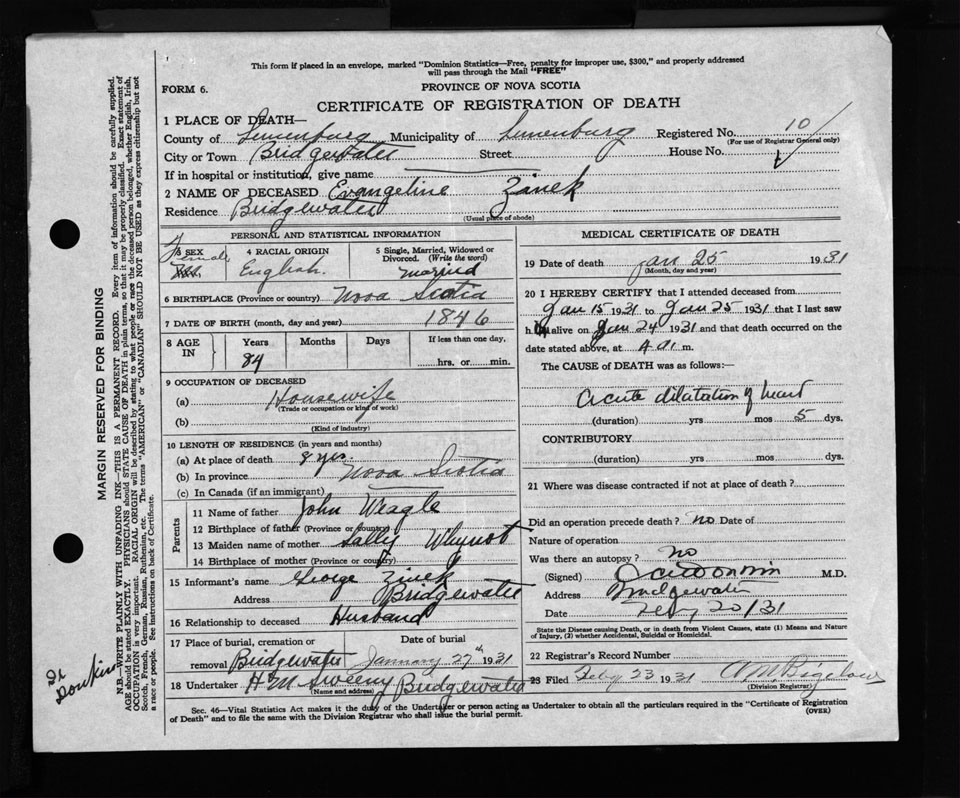 This form if placed in an envelope, marked "Dominion Statistics—Free, penalty for improper use, $300," and properly addressed
will pass through the Mail "FREE"
FORM 6. PROVINCE OF NOVA SCOTIA
CERTIFICATE OF REGISTRATION OF DEATH
1 PLACE OF DEATH—
County of Lunenburg Municipality of Lunenburg Registered No. 10
(For use of Registrar General only)
City or Town Bridgewater Street House No.
If in hospital or institution, give name
2 NAME OF DECEASED Evangeline Zinck
Residence Bridgewater
(Usual place of abode)
PERSONAL AND STATISTICAL INFORMATION
3 SEX Female
4 RACIAL ORIGIN English
5 Single, Married, Widowed or Divorced. (Write the word) Married
6 BIRTHPLACE (Province or country) Nova Scotia
7 DATE OF BIRTH (month, day and year) 1846
8 AGE IN Years 84 Months Days If less than one day, hrs. or min.
9 OCCUPATION OF DECEASED
(a) Housewife
(Trade or occupation or kind of work)
(b)
(Kind of industry)
10 LENGTH OF RESIDENCE (in years and months)
(a) At place of death 8 yrs.
(b) In province Nova Scotia
(c) In Canada (if an immigrant)
Parents
11 Name of father John Weagle
12 Birthplace of father (Province or country)
13 Maiden name of mother Sally Whynot
14 Birthplace of mother (Province or country)
15 Informant's name George Zinck
Address Bridgewater
16 Relationship to deceased Husband
17 Place of burial, cremation or removal Bridgewater Date of burial January 27th 1931
18 Undertaker H M Sweeny Bridgewater
(Name and address)
MEDICAL CERTIFICATE OF DEATH
19 Date of death Jan 25 1931
(Month, day and year)
20 I HEREBY CERTIFY that I attended deceased from
Jan 15 1931 to Jan 25 1931 that I last saw
h alive on Jan 24 1931 and that death occurred on
date stated above, at 4 a. m.
The CAUSE of DEATH was as follows:—
Acute dilatation of heart
(duration) yrs mos 5 dys.
CONTRIBUTORY
(duration) yrs mos dys.
21 Where was disease contracted if not at place of death?
Did an operation precede death? no Date of
Nature of operation
Was there an autopsy? no
(Signed) M.D.
Address Bridgewater
Date Feby 20/31
State the Disease causing Death, or in death from Violent Causes, state (1) Means and Nature
of Injury, (2) whether Accidental, Suicidal or Homicidal.
22 Registrar's Record Number
23 Filed Feby 23 1931 Bigelow
(Division Registrar)
Sec. 46—Vital Statistics Act makes it the duty of the Undertaker or person acting as Undertaker to obtain all the particulars required in the "Certificate of Registration
of Death" and to file the same with the Division Registrar who shall issue the burial permit. (OVER)
MARGIN RESERVED FOR BINDING
N.B.—WRITE PLAINLY WITH UNFADING INK—THIS IS A PERMANENT RECORD. Every item of information should be carefully supplied.
AGE should be stated EXACTLY. PHYSICIANS should STATE CAUSE OF DEATH in plain terms, so that it may be properly classified. Exact statement of
OCCUPATION is very important. RACIAL ORIGIN will be described by stating to what people or race the deceased person belonged, whether English, Irish,
Scotch, French, German, Russian, Ruthenian, etc. The terms "AMERICAN" or "CANADIAN" SHOULD NOT BE USED as they express citizenship but not
a race or people. See instructions on back of Certificate.
Dr
Donkin